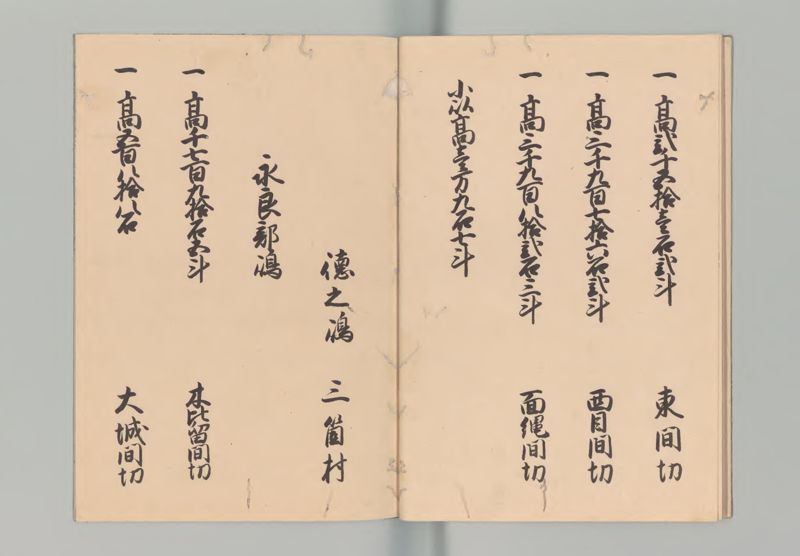 一 高弐千五拾壱石弐斗 東間切
一 高三千九百七拾六石弐斗 西目間切
一 高三千九百八拾弐石三斗 面縄間切
小以高壱万九石七斗
徳之嶋 三箇村
永良部嶋
一 高千七百九拾石五斗 木比留間切
一 高五百八拾八石 大城間切